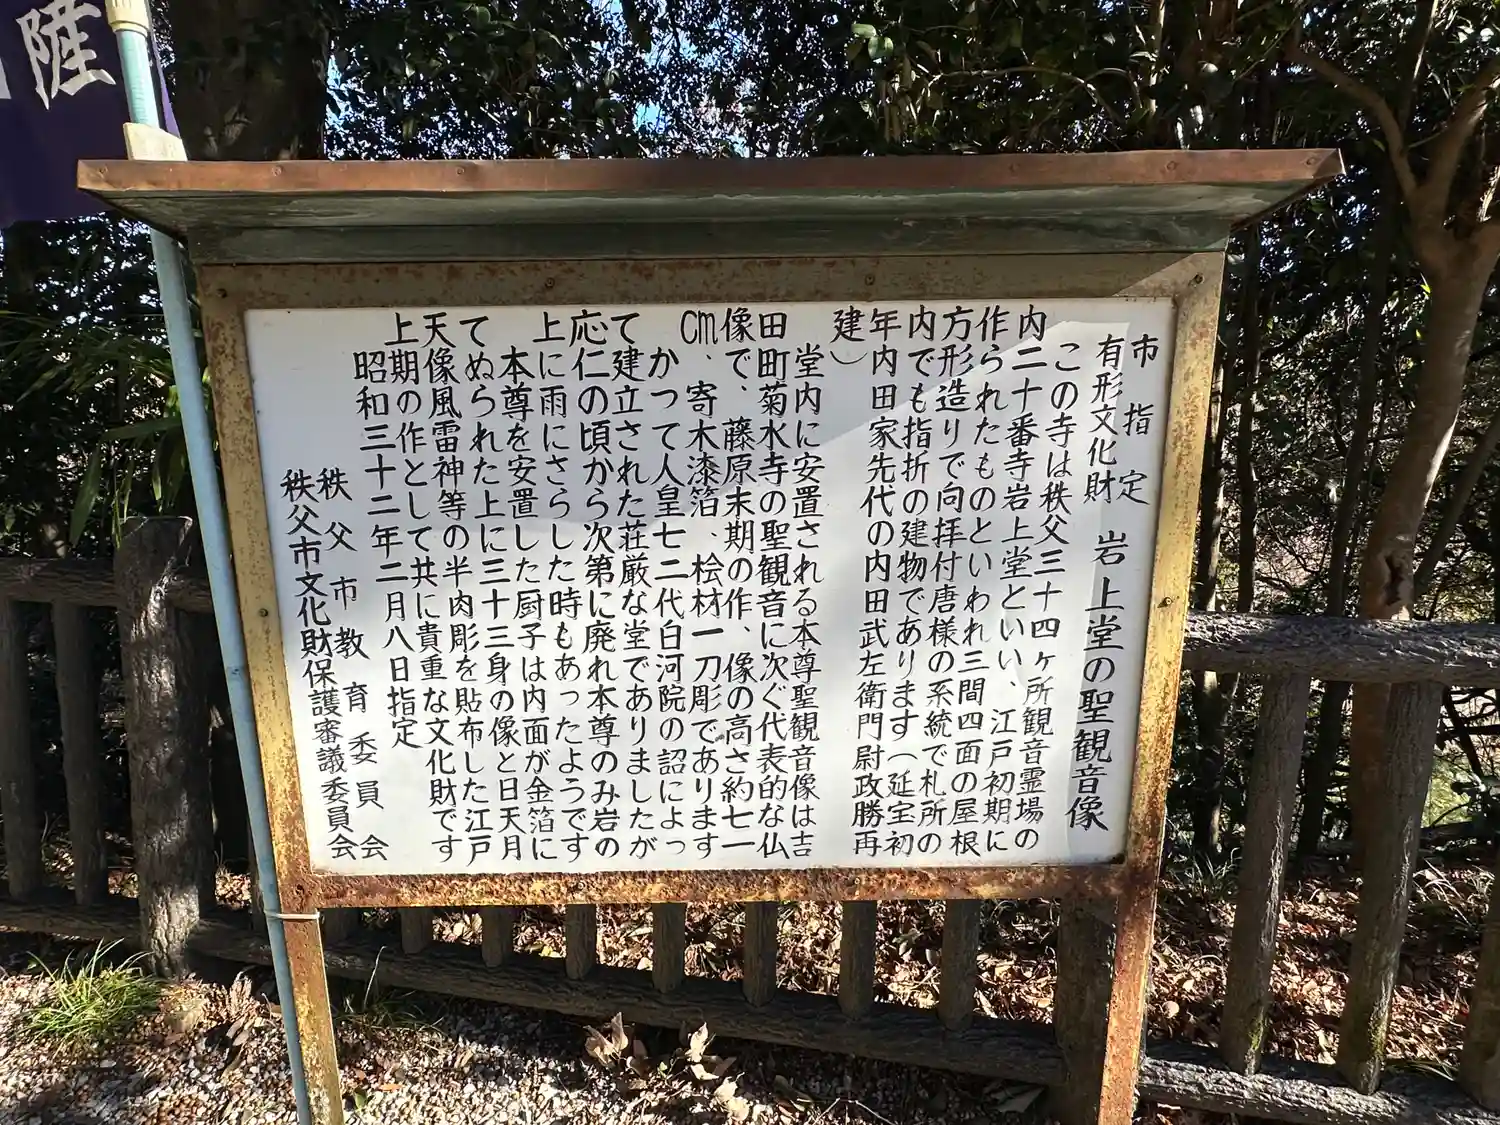 薩
市指定
有形文化財 岩上堂の聖観音像
この寺は秩父三十四ヶ所観音霊場の
内二十番寺岩上堂といい、江戸初期に
作られたものといわれ三間四面の屋根
方形造りで向拝付唐様の系統で札所の
内でも指折の建物であります(延宝初
年内田家先代の内田武左衛門尉政勝再
建)
堂内に安置される本尊聖観音像は吉
田町菊水寺の聖観音に次ぐ代表的な仏
像で、藤原末期の作、像の高さ約七一
cm、寄木漆箔、桧材一刀彫であります
かつて人皇七二代白河院の詔によっ
て建立された荘厳な堂でありましたが
応仁の頃から次第に廃れ本尊のみ岩の
上に雨にさらした時もあったようです
本尊を安置した厨子は内面が金箔に
てぬられた上に三十三身の像と日天月
天像風雷神等の半肉彫を貼布した江戸
上期の作として共に貴重な文化財です
昭和三十二年二月八日指定
秩父市教育委員会
秩父市文化財保護審議委員会